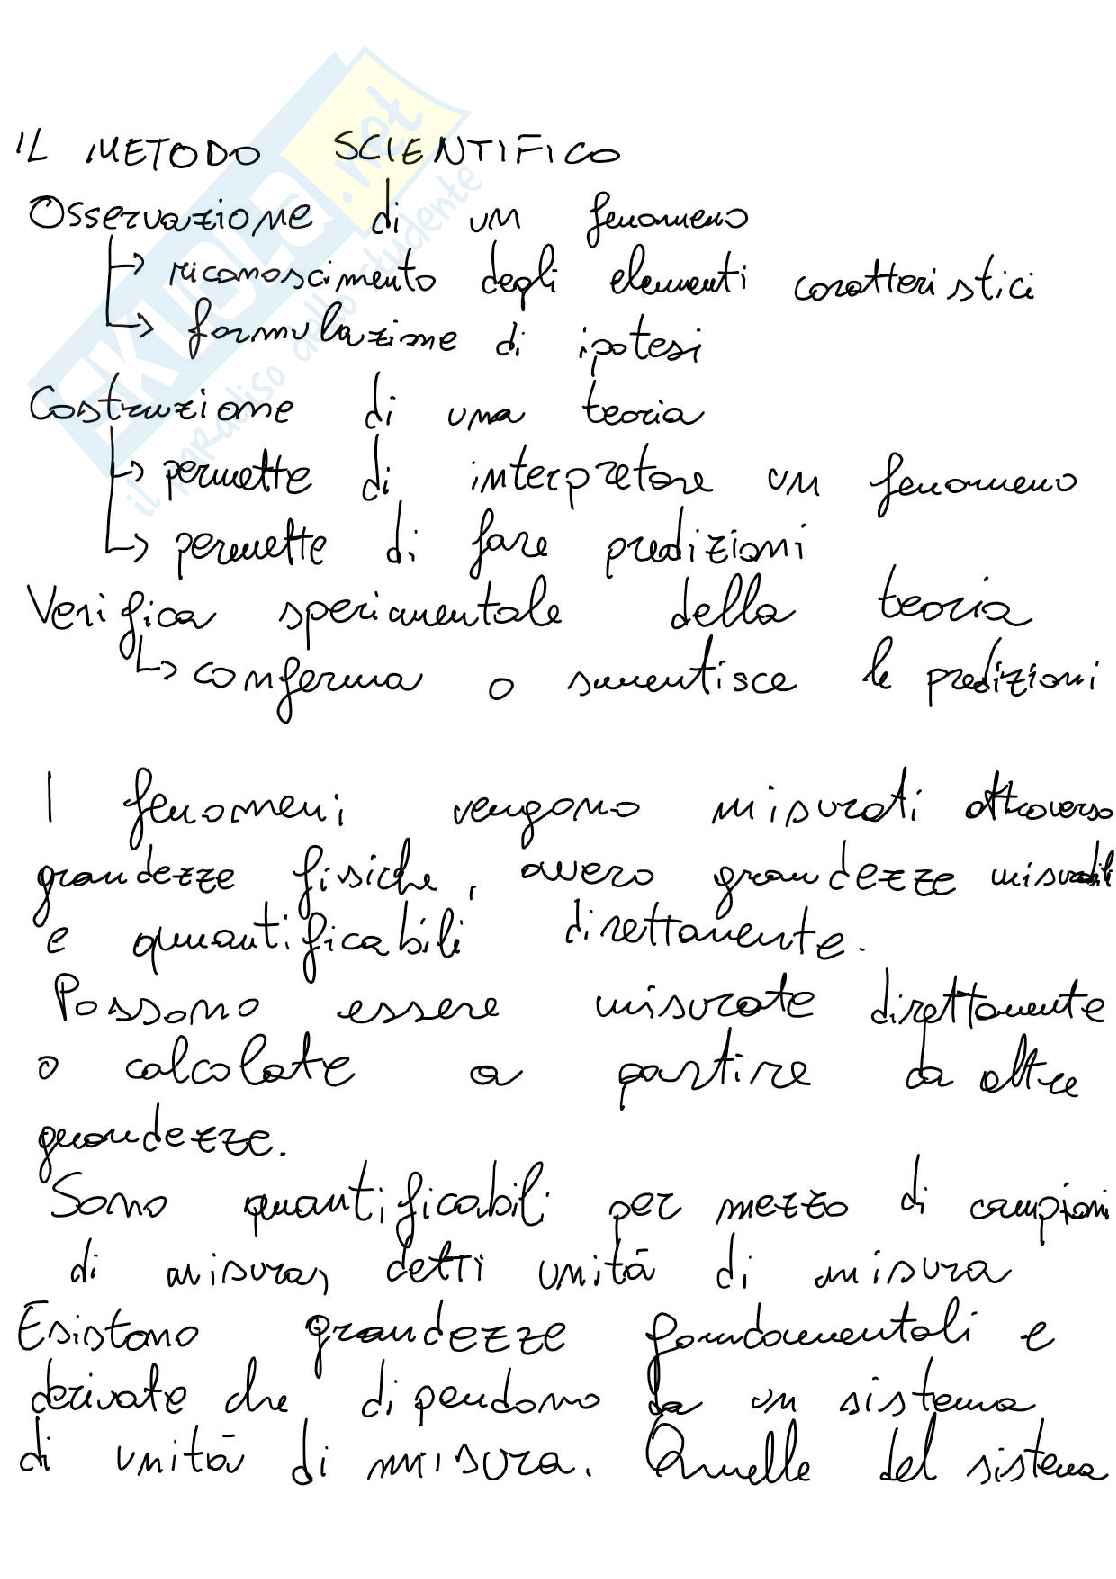 IL METODO SCIENTIFICO
Osservazione di un fenomeno
↳ riconoscimento degli elementi caratteristici
↳ formulazione di ipotesi
Costruzione di una teoria
↳ permette di interpretare un fenomeno
↳ permette di fare predizioni
Verifica sperimentale della teoria
↳ conferma o smentisce le predizioni
I fenomeni vengono misurati attraverso
grandezze fisiche, ovvero grandezze misurabili
e quantificabili direttamente.
Possono essere misurate direttamente
o calcolate a partire da altre
grandezze.
Sono quantificabili per mezzo di campioni
di misura, detti unità di misura
Esistono grandezze fondamentali e
derivate che dipendono da un sistema
di unità di misura. Quelle del sistema
SKUOLA.net
il paradiso dello studente